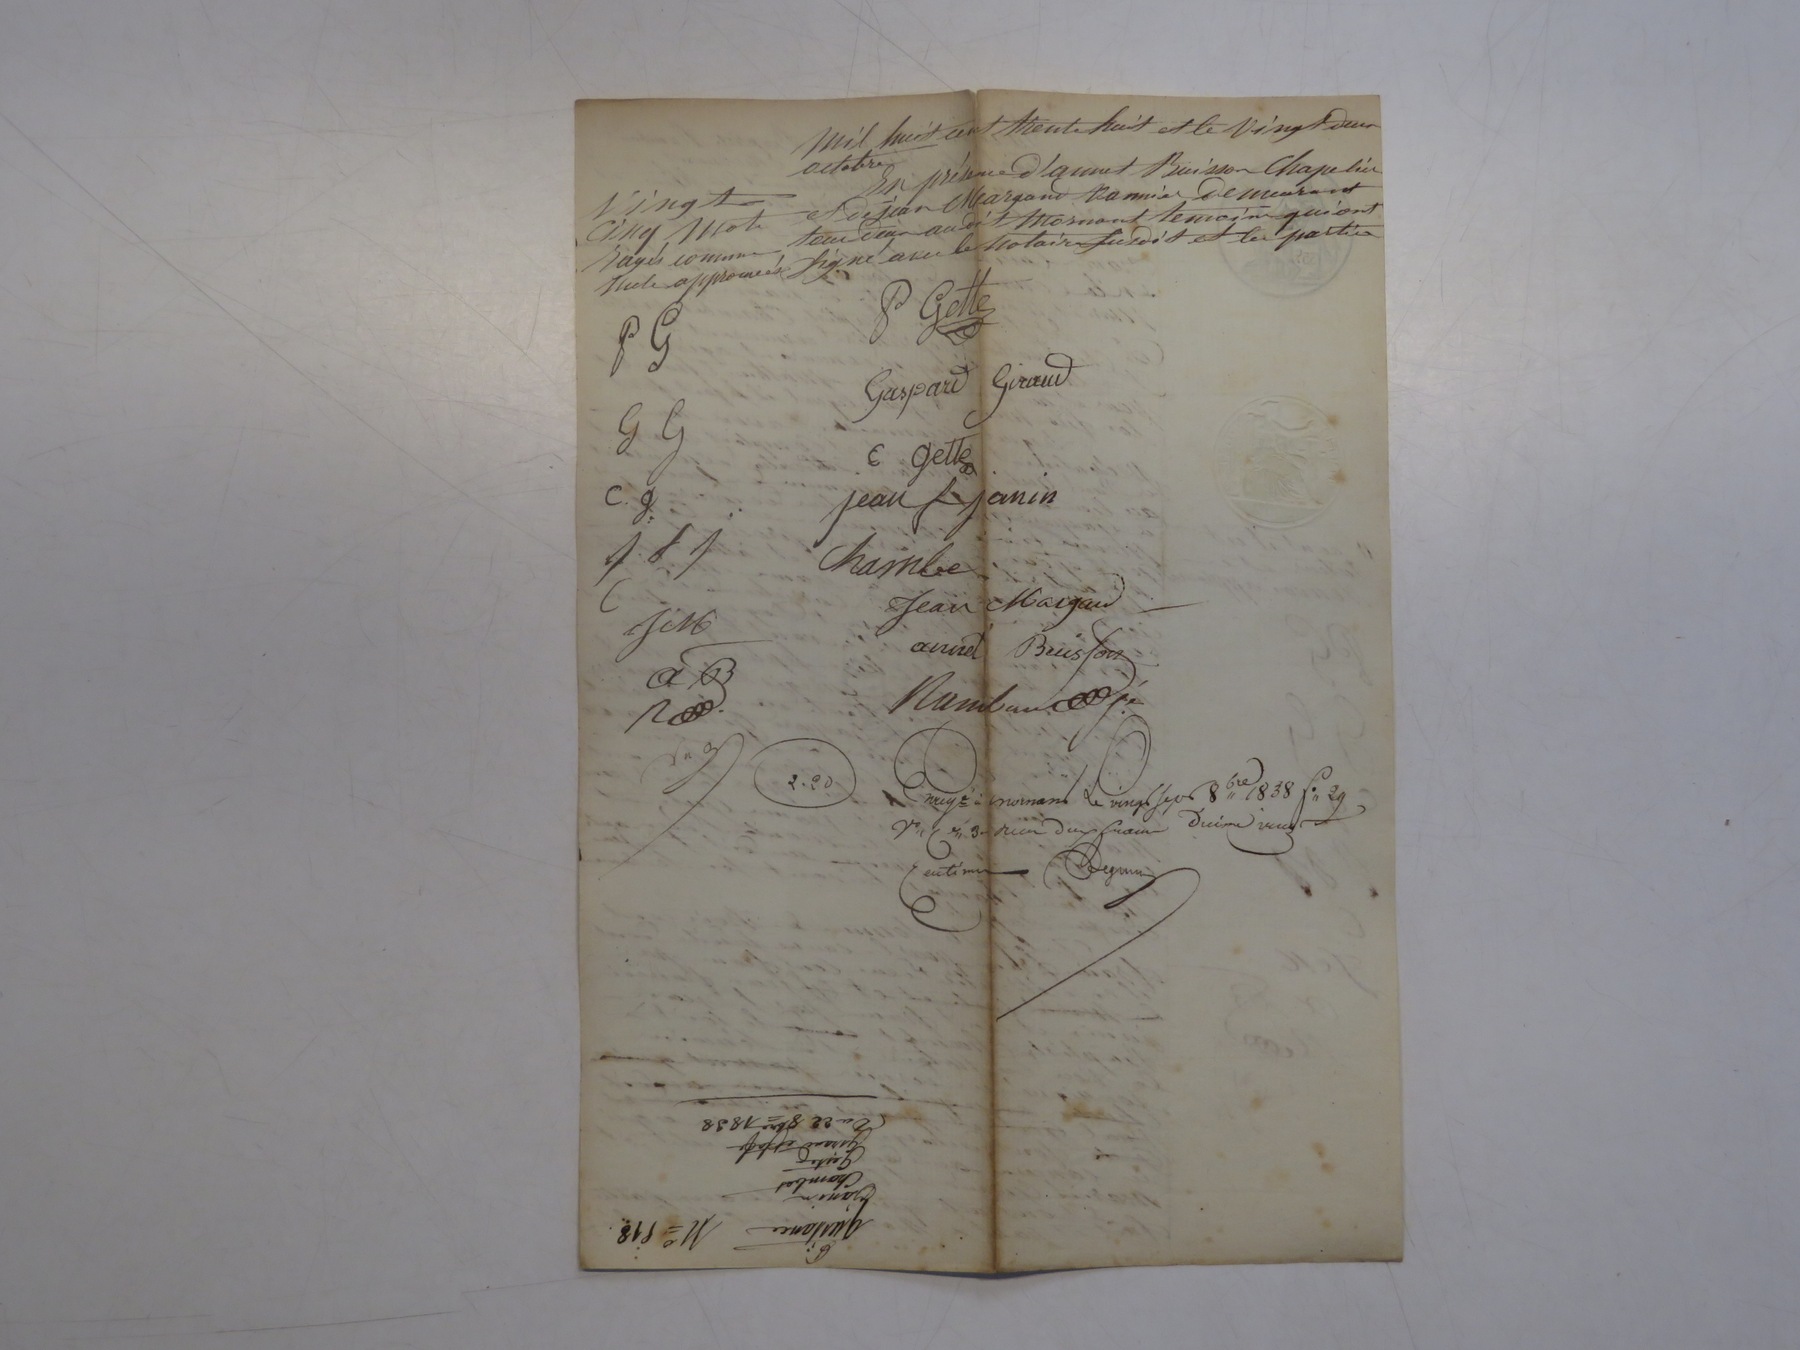 Mil huit cent trente huit et le Vingt deux
octobre
En présence d'annet Buisson Chapelier
et de jean Margand Vannier demeurant
tous deux au dit Mornant temoins qui ont
Signé avec le notaire susdit et les parties
Vingt
Cinq Mots
Rayés comme
nuls approuvés
P G
P Gette
Gaspard Giraud
G G
C gette
C. g.
jean f janin
j f j
Chambe
C
Jean Margand
J M
annet Buisson
a B
Rambaud
R
2.20
Enregé à mornant Le vingt sept 8bre 1838 f° 29
Vo C 3 reçu deux francs Décime vingt
Centimes
No 518.
Quittance
Janin
Chambe
Gette
Giraud
Du 22 8bre 1838